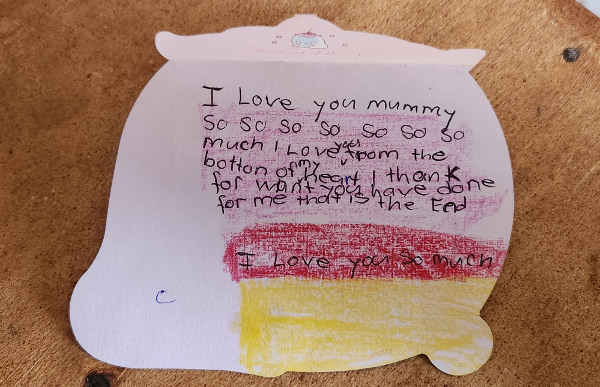 I Love you mummy
So So So So So So So
much I Love you from the
botton of my heart I thank
for want you have done
for me that is the End
I Love you so much
C